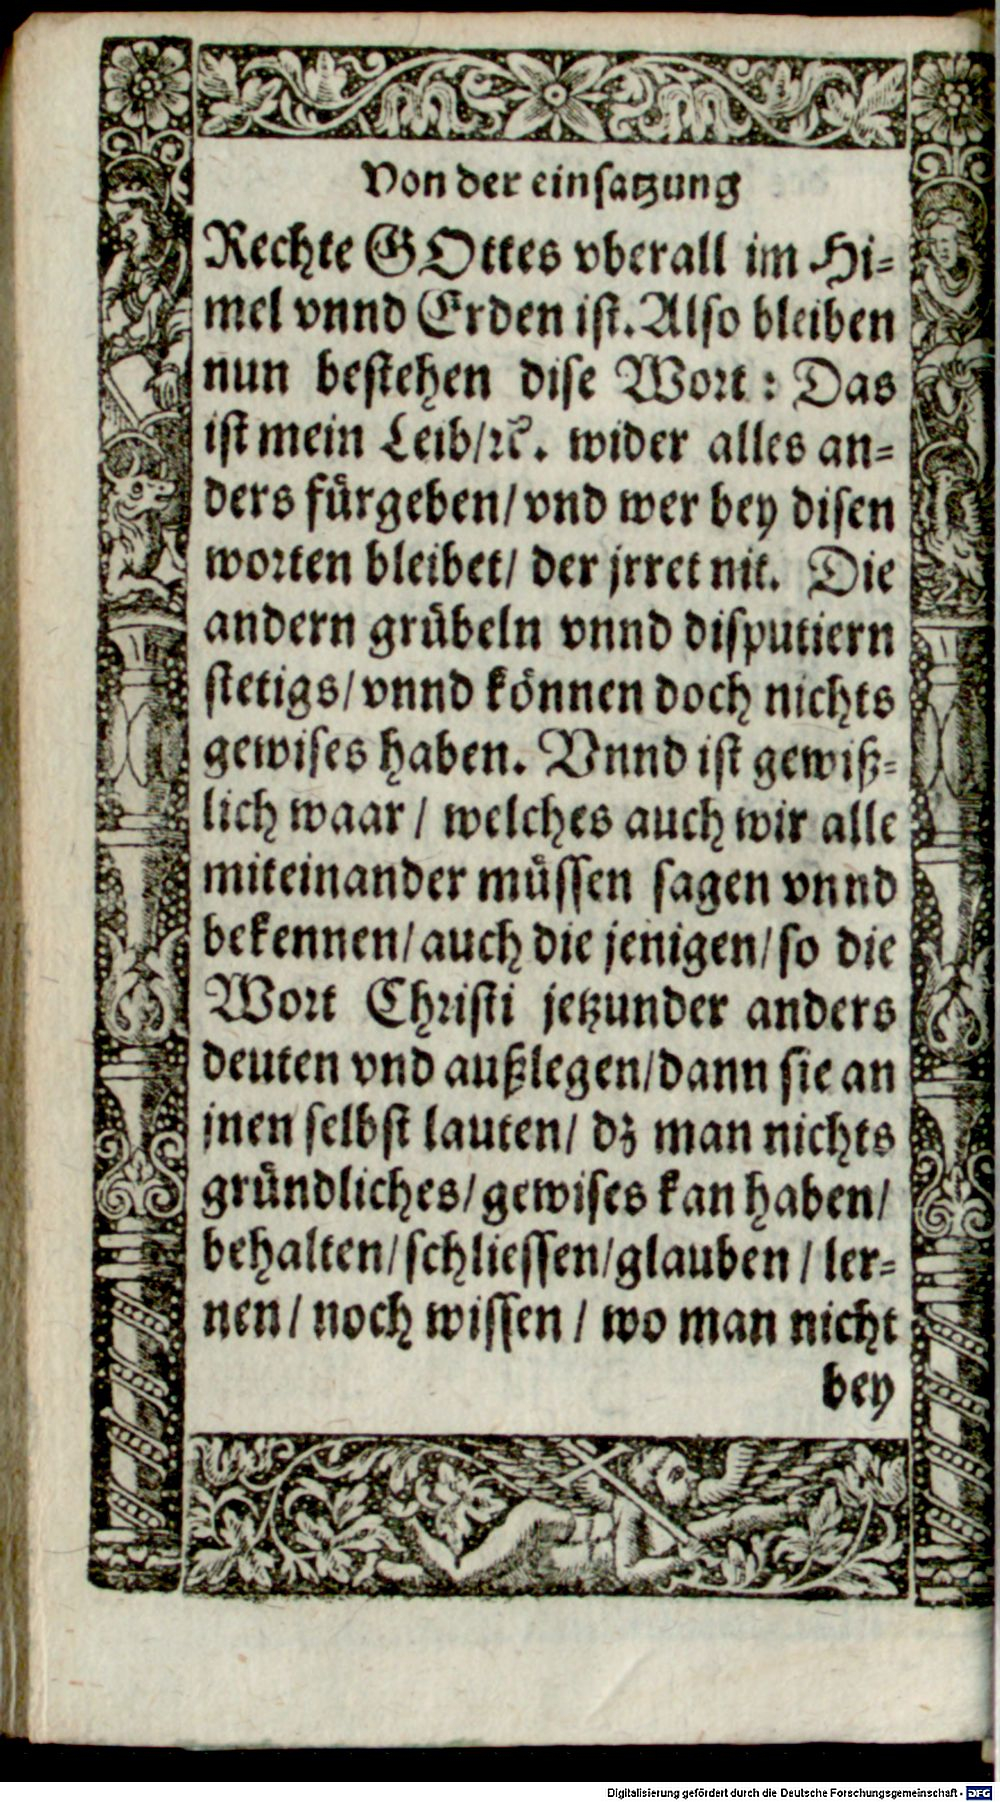 Von der einsatzung
Rechte GOttes vberall im Hi=
mel vnnd Erden ist. Also bleiben
nun bestehen dise Wort: Das
ist mein Leib/ꝛc. wider alles an=
ders fürgeben/ vnd wer bey disen
worten bleibet/ der jrret nit. Die
andern grübeln vnnd disputiern
stetigs/ vnnd können doch nichts
gewises haben. Vnnd ist gewiß=
lich waar/ welches auch wir alle
miteinander müssen sagen vnnd
bekennen/ auch die jenigen/ so die
Wort Christi jetzunder anders
deuten vnd außlegen/ dann sie an
jnen selbst lauten/ dz man nichts
gründliches/ gewises kan haben/
behalten/ schliessen/ glauben/ ler=
nen/ noch wissen/ wo man nicht
bey
Digitalisierung gefördert durch die Deutsche Forschungsgemeinschaft - DFG